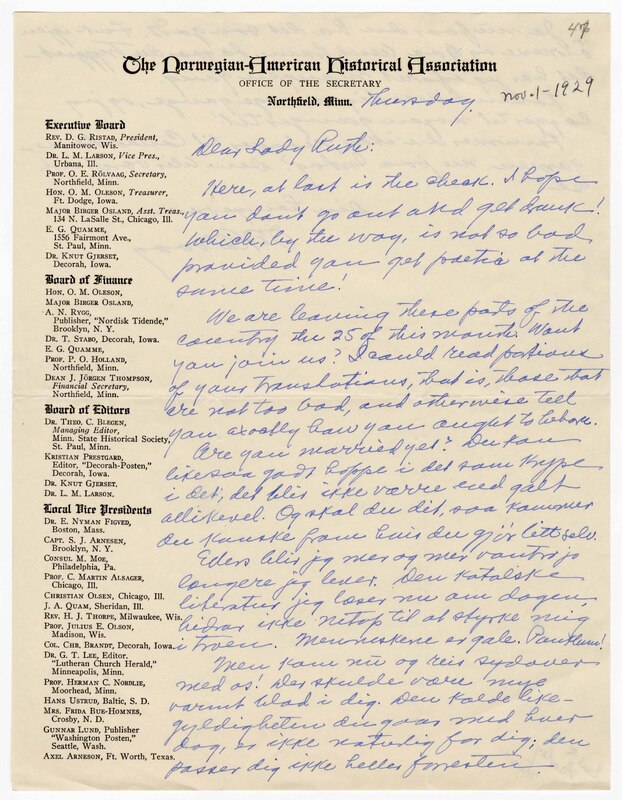 46
The Norwegian-American Historical Association
OFFICE OF THE SECRETARY
Northfield, Minn. Thursday.
nov.-1-1929
Executive Board
REV. D. G. RISTAD, President,
Manitowoc, Wis.
DR. L. M. LARSON, Vice Pres.,
Urbana, Ill.
PROF. O. E. RÖLVAAG, Secretary,
Northfield, Minn.
HON. O. M. OLESON, Treasurer,
Ft. Dodge, Iowa.
MAJOR BIRGER OSLAND, Asst. Treas.,
134 N. LaSalle St., Chicago, Ill.
E. G. QUAMME,
1556 Fairmont Ave.,
St. Paul, Minn.
DR. KNUT GJERSET,
Decorah, Iowa.
Board of Finance
HON. O. M. OLESON,
MAJOR BIRGER OSLAND,
A. N. RYGG,
Publisher, "Nordisk Tidende,"
Brooklyn, N. Y.
DR. T. STABO, Decorah, Iowa.
E. G. QUAMME,
PROF. P. O. HOLLAND,
Northfield, Minn.
DEAN J. JÖRGEN THOMPSON,
Financial Secretary,
Northfield, Minn.
Board of Editors
DR. THEO. C. BLEGEN,
Managing Editor,
Minn. State Historical Society,
St. Paul, Minn.
KRISTIAN PRESTGARD,
Editor, "Decorah-Posten,"
Decorah, Iowa.
DR. KNUT GJERSET.
DR. L. M. LARSON.
Local Vice Presidents
DR. E. NYMAN FIGVED,
Boston, Mass.
CAPT. S. J. ARNESEN,
Brooklyn, N. Y.
CONSUL M. MOE,
Philadelphia, Pa.
PROF. C. MARTIN ALSAGER,
Chicago, Ill.
CHRISTIAN OLSEN, Chicago, Ill.
J. A. QUAM, Sheridan, Ill.
REV. H. J. THORPE, Milwaukee, Wis.
PROF. JULIUS E. OLSON,
Madison, Wis.
COL. CHR. BRANDT, Decorah, Iowa.
DR. G. T. LEE, Editor,
"Lutheran Church Herald,"
Minneapolis, Minn.
PROF. HERMAN C. NORDLIE,
Moorhead, Minn.
HANS USTRUD, Baltic, S. D.
MRS. FRIDA BUE-HOMNES,
Crosby, N. D.
GUNNAR LUND, Publisher
"Washington Posten,"
Seattle, Wash.
AXEL ARNESON, Ft. Worth, Texas.
Dear Lady Ruth:
Here, at last is the check. I hope
you don't go out and get drunk!
Which, by the way, is not so bad
provided you get poetic at the
same time!
We are leaving these parts of the
country the 25 of this month. Want
you join us? I could read portions
of your translations, that is, those that
are not too bad, and otherwise tell
you exactly how you ought to behave.
Are you married yet? Du kan
likesaa godt hoppe i det som krype
i det, det blir ikke værre end galt
allikevel. Og skal du dit, saa kommer
du kanske frem hvis du gjør litt selv.
Eders blir jeg mer og mer vantro jo
longere jeg lever. Den katolske
literatur jeg læser nu om dagen,
bidrar ikke netop til at styrke mig
i troen. Menneskene er gale. Punktum!
Men kom nu og reis sydover
med os! Der skulde være mye
varmt blod i dig. Den kolde like-
gyldigheten du gaar med hver
dag, er ikke naturlig for dig; den
passer dig ikke heller forresten.